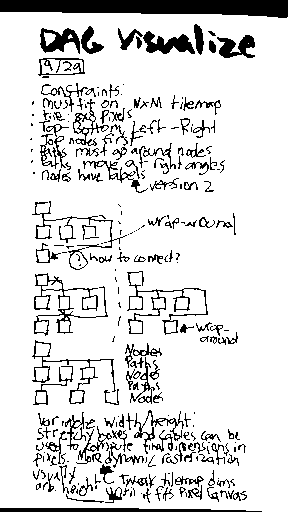 DAG Visualize
9/29
Constraints:
· must fit on NxM tilemap
· tile: 8x8 Pixels
· Top-Bottom, Left-Right
· Top nodes first
· Paths must go around nodes
· Paths move at right angles
· nodes have labels
version 2
wrap-around
? how to connect?
wrap-around
Nodes
Paths
Nodes
Paths
Nodes
Variable width/height:
Stretchy boxes and cables can be
used to compute final dimensions in
pixels. More dynamic rasterization
usually
tweak tilemap dims
arb. height
until it fits pixel canvas